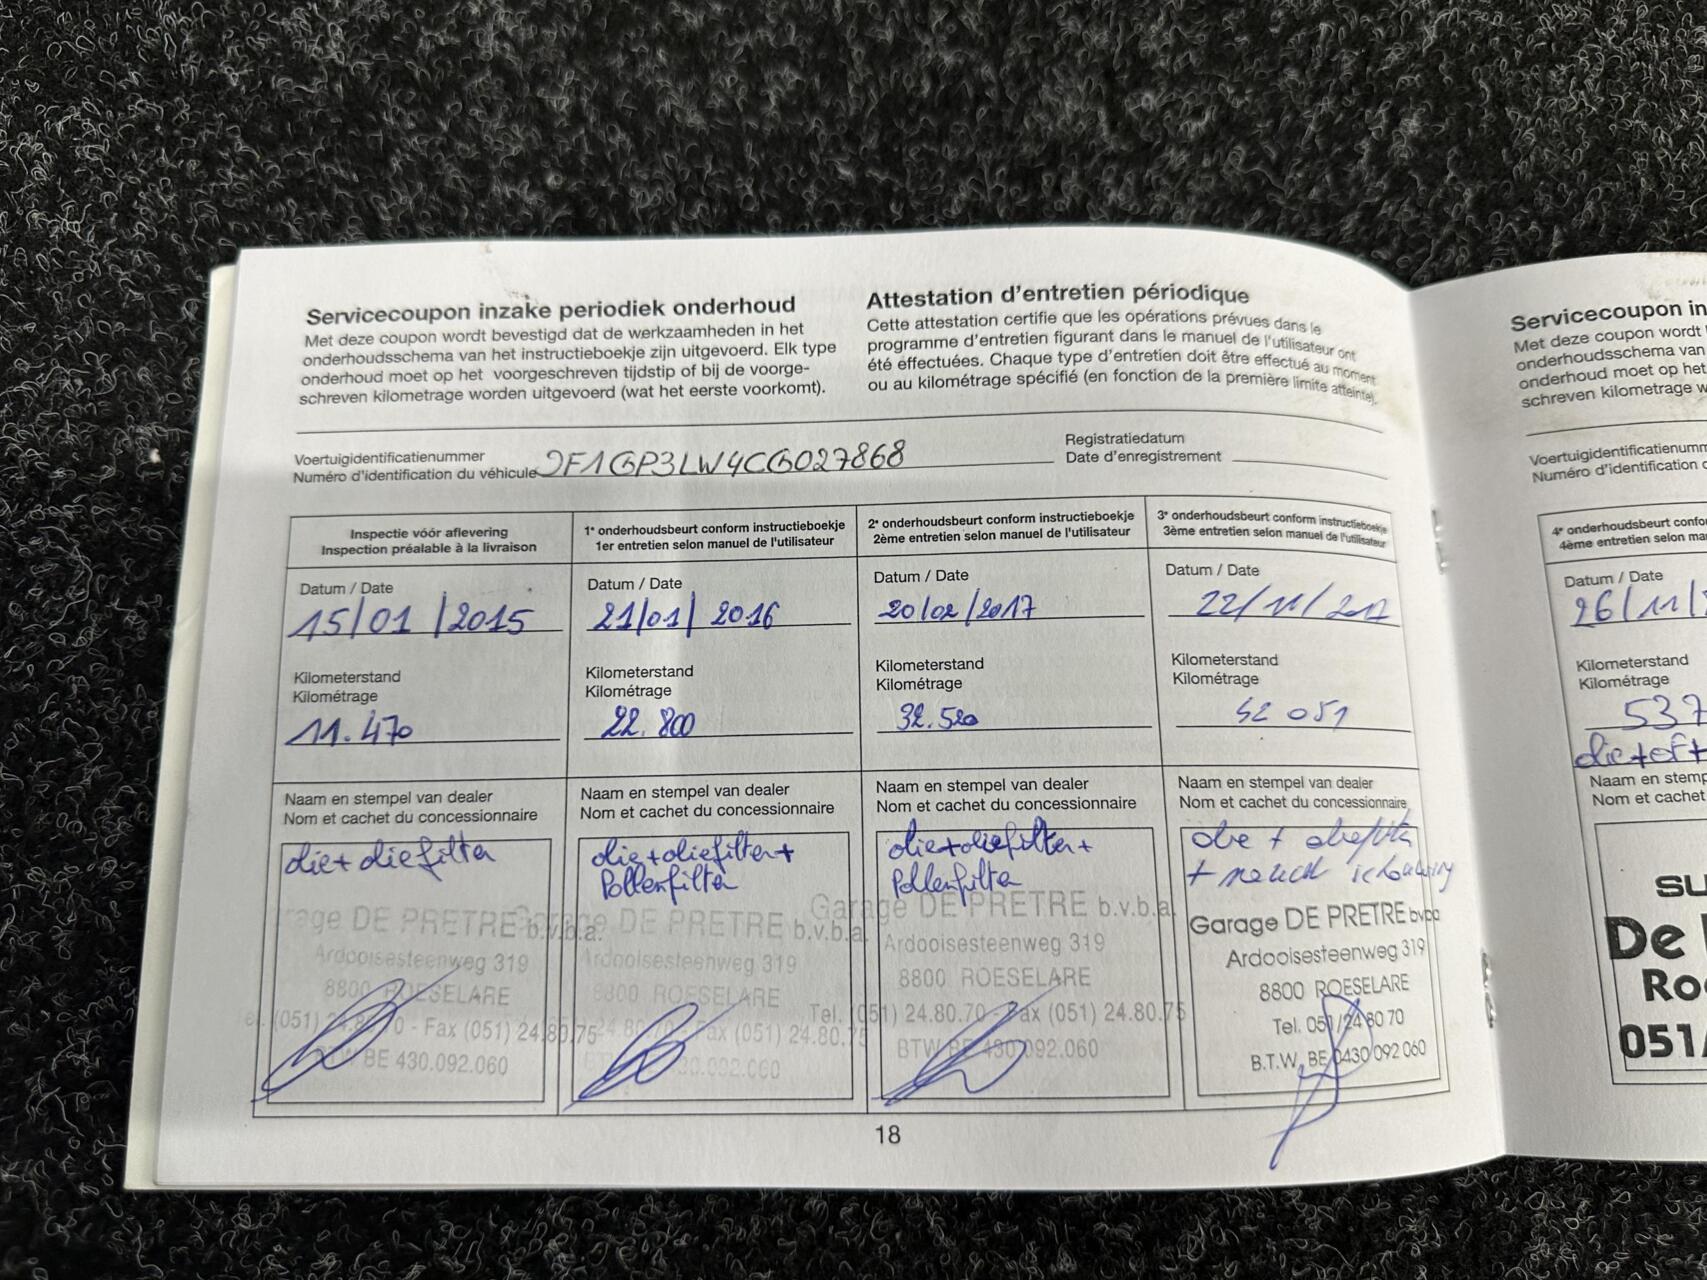 Servicecoupon inzake periodiek onderhoud
Met deze coupon wordt bevestigd dat de werkzaamheden in het
onderhoudsschema van het instructieboekje zijn uitgevoerd. Elk type
onderhoud moet op het voorgeschreven tijdstip of bij de voorge-
schreven kilometrage worden uitgevoerd (wat het eerste voorkomt).
Attestation d'entretien périodique
Cette attestation certifie que les opérations prévues dans le
programme d'entretien figurant dans le manuel de l'utilisateur ont
été effectuées. Chaque type d'entretien doit être effectué au moment
ou au kilométrage spécifié (en fonction de la première limite atteinte).
Voertuigidentificatienummer
Numéro d'identification du véhicule JF1GP3LW4CG027868
Registratiedatum
Date d'enregistrement
Inspectie vóór aflevering
Inspection préalable à la livraison
Datum / Date
15/01/2015
Kilometerstand
Kilométrage
11.470
Naam en stempel van dealer
Nom et cachet du concessionnaire
olie + oliefilter
rage DE PRETRE b.v.b.a.
Ardooisesteenweg 319
8800 ROESELARE
(051) 24.80.70 - Fax (051) 24.80.75
BTW BE 430.092.060
1e onderhoudsbeurt conform instructieboekje
1er entretien selon manuel de l'utilisateur
Datum / Date
21/01/2016
Kilometerstand
Kilométrage
22.800
Naam en stempel van dealer
Nom et cachet du concessionnaire
olie + oliefilter +
Pollenfilter
DE PRETRE b.v.b.a.
Ardooisesteenweg 319
8800 ROESELARE
24.80.70 - Fax (051) 24.80.75
430.092.060
2e onderhoudsbeurt conform instructieboekje
2ème entretien selon manuel de l'utilisateur
Datum / Date
20/02/2017
Kilometerstand
Kilométrage
32.520
Naam en stempel van dealer
Nom et cachet du concessionnaire
olie + oliefilter +
Pollenfilter
Garage DE PRETRE b.v.b.a.
Ardooisesteenweg 319
8800 ROESELARE
Tel. (051) 24.80.70 - Fax (051) 24.80.75
BTW BE 430.092.060
3e onderhoudsbeurt conform instructieboekje
3ème entretien selon manuel de l'utilisateur
Datum / Date
22/11/2017
Kilometerstand
Kilométrage
42 051
Naam en stempel van dealer
Nom et cachet du concessionnaire
olie + oliefilter
+
Garage DE PRETRE bvba
Ardooisesteenweg 319
8800 ROESELARE
Tel. 051/24 80 70
B.T.W. BE 0430 092 060
18
Servicecoupon in
Met deze coupon wordt
onderhoudsschema van
onderhoud moet op het
schreven kilometrage w
Voertuigidentificatienumm
Numéro d'identification
4e onderhoudsbeurt confo
4ème entretien selon ma
Datum / Date
26/11/
Kilometerstand
Kilométrage
537
olie + of +
Naam en stemp
Nom et cachet
SU
De
Ro
051/